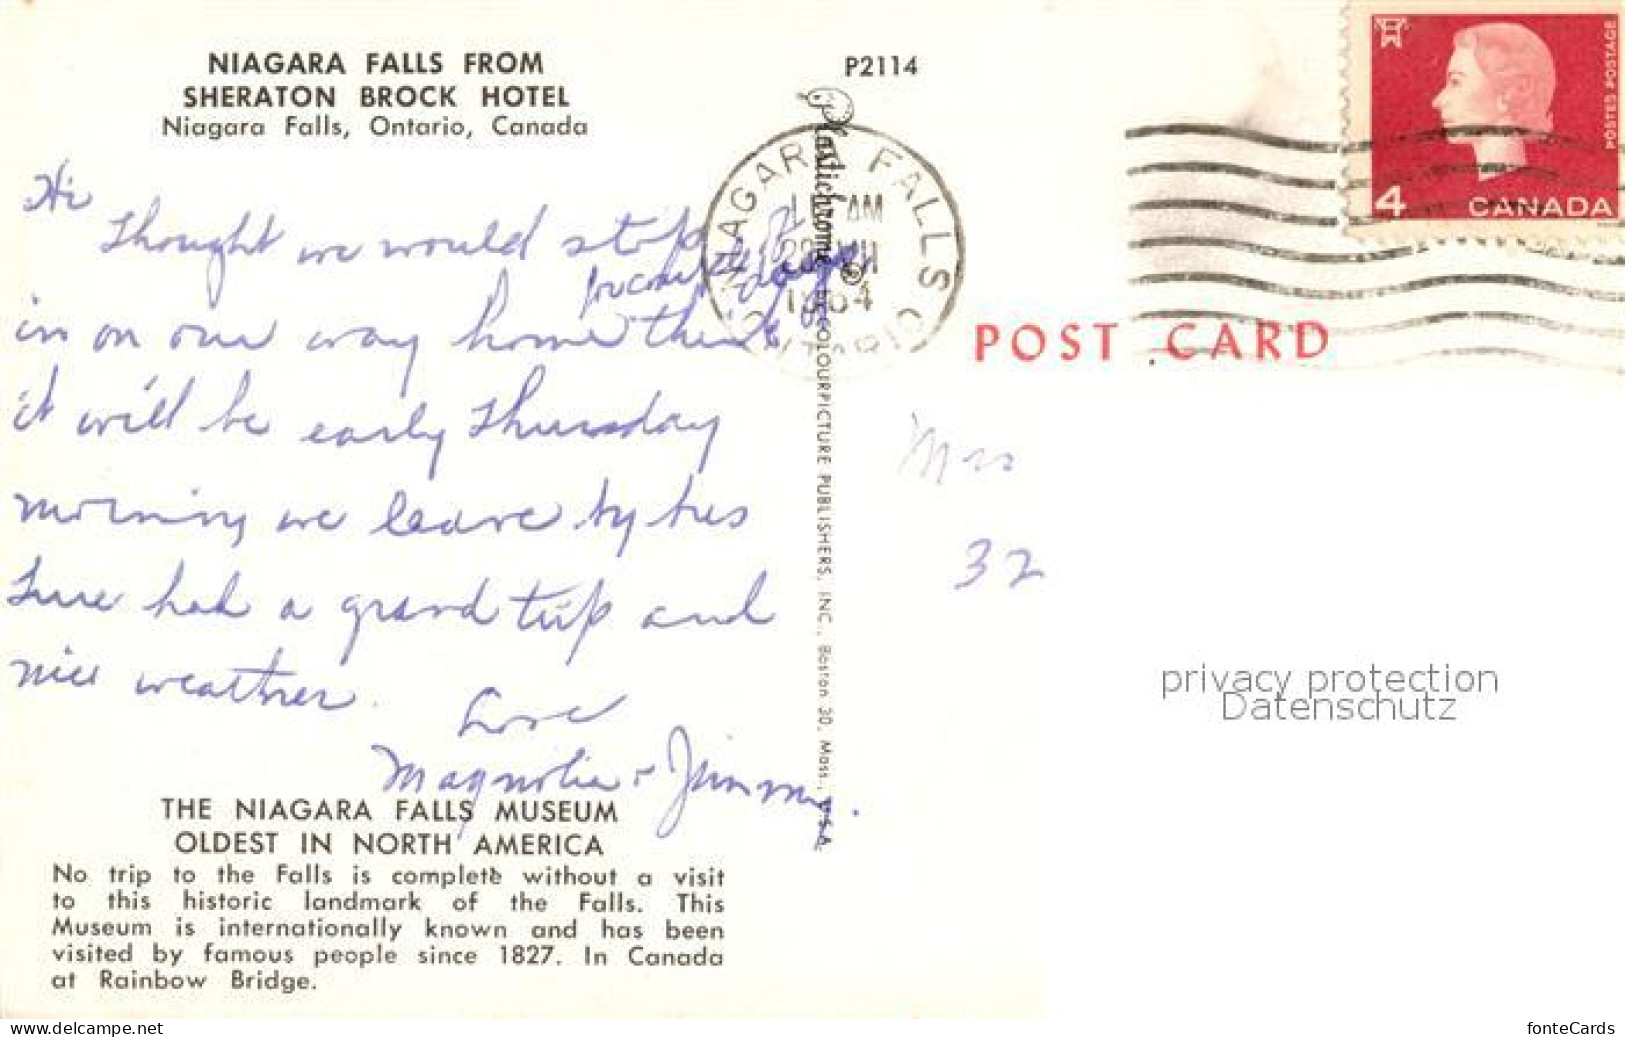 NIAGARA FALLS FROM
SHERATON BROCK HOTEL
Niagara Falls, Ontario, Canada
P2114
Hi
Thought we would stop
in on our way home think
it will be early Thursday
morning we leave by bus
Sure had a grand trip and
nice weather.
Love
Magnolia + Jimmy.
THE NIAGARA FALLS MUSEUM
OLDEST IN NORTH AMERICA
No trip to the Falls is complete without a visit
to this historic landmark of the Falls. This
Museum is internationally known and has been
visited by famous people since 1827. In Canada
at Rainbow Bridge.
Plastichrome ® BY COLOURPICTURE PUBLISHERS, INC., Boston 30, Mass., U.S.A.
NIAGARA FALLS
AM
POSTES POSTAGE
4 CANADA
POST CARD
Mrs
32
privacy protection
Datenschutz
www.delcampe.net
fonteCards